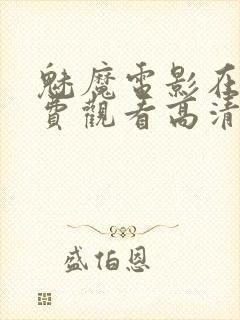 魅魔電影在
費觀看高清
盛伯恩